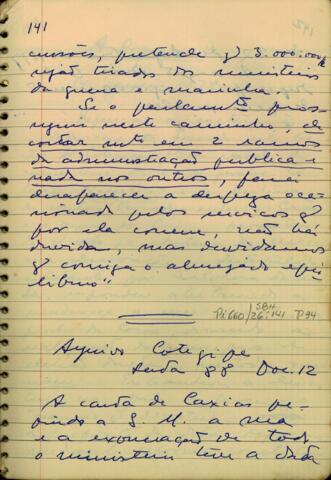 141
cussões, pretende q 3.000.000
sejão tirados do ministerio
da guerra e marinha.
Se o parlamto pros-
seguir neste caminho, de
cortar mto em 2 ramos
da administração publica e
nada nos outros, fará
desaparecer a despeza oca-
sionada pelos serviços q
por ela correm, não há
duvida, mas duvidamos
q consiga o almejado equi-
librio"
SBH
Pi 660/26:141 P94
Arquivo Cotegipe
88 Doc. 12
A carta de Caxias pe-
dindo a S. M. a sua
e a exoneração de todo
o ministerio tem a data